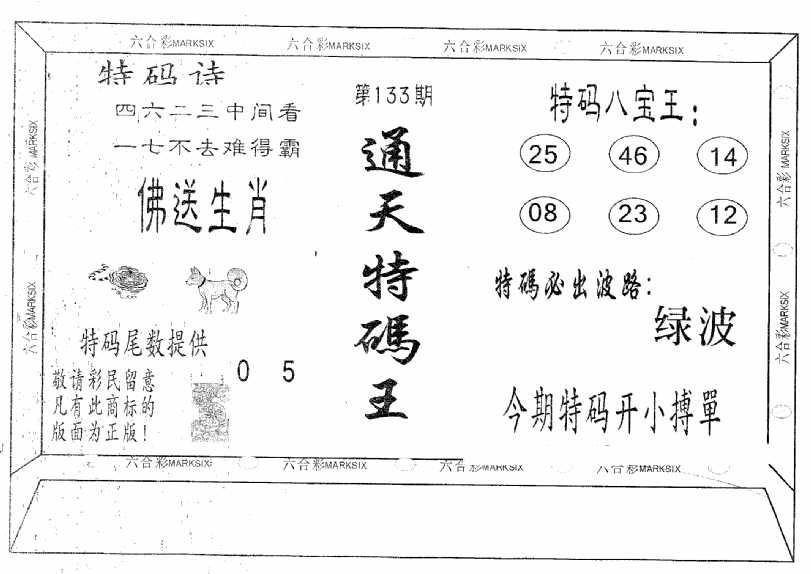 六合彩MARKSIX 六合彩MARKSIX 六合彩MARKSIX 六合彩MARKSIX
特码诗
四六二三中间看
一七不去难得霸
佛送生肖
特码尾数提供
0 5
敬请彩民留意
凡有此商标的
版面为正版！
第133期
通天特碼王
特码八宝王：
25 46 14
08 23 12
特碼必出波路：
绿波
今期特码开小搏單
六合彩MARKSIX
六合彩MARKSIX
六合彩MARKSIX
六合彩MARKSIX
六合彩MARKSIX 六合彩MARKSIX 六合彩MARKSIX 六合彩MARKSIX